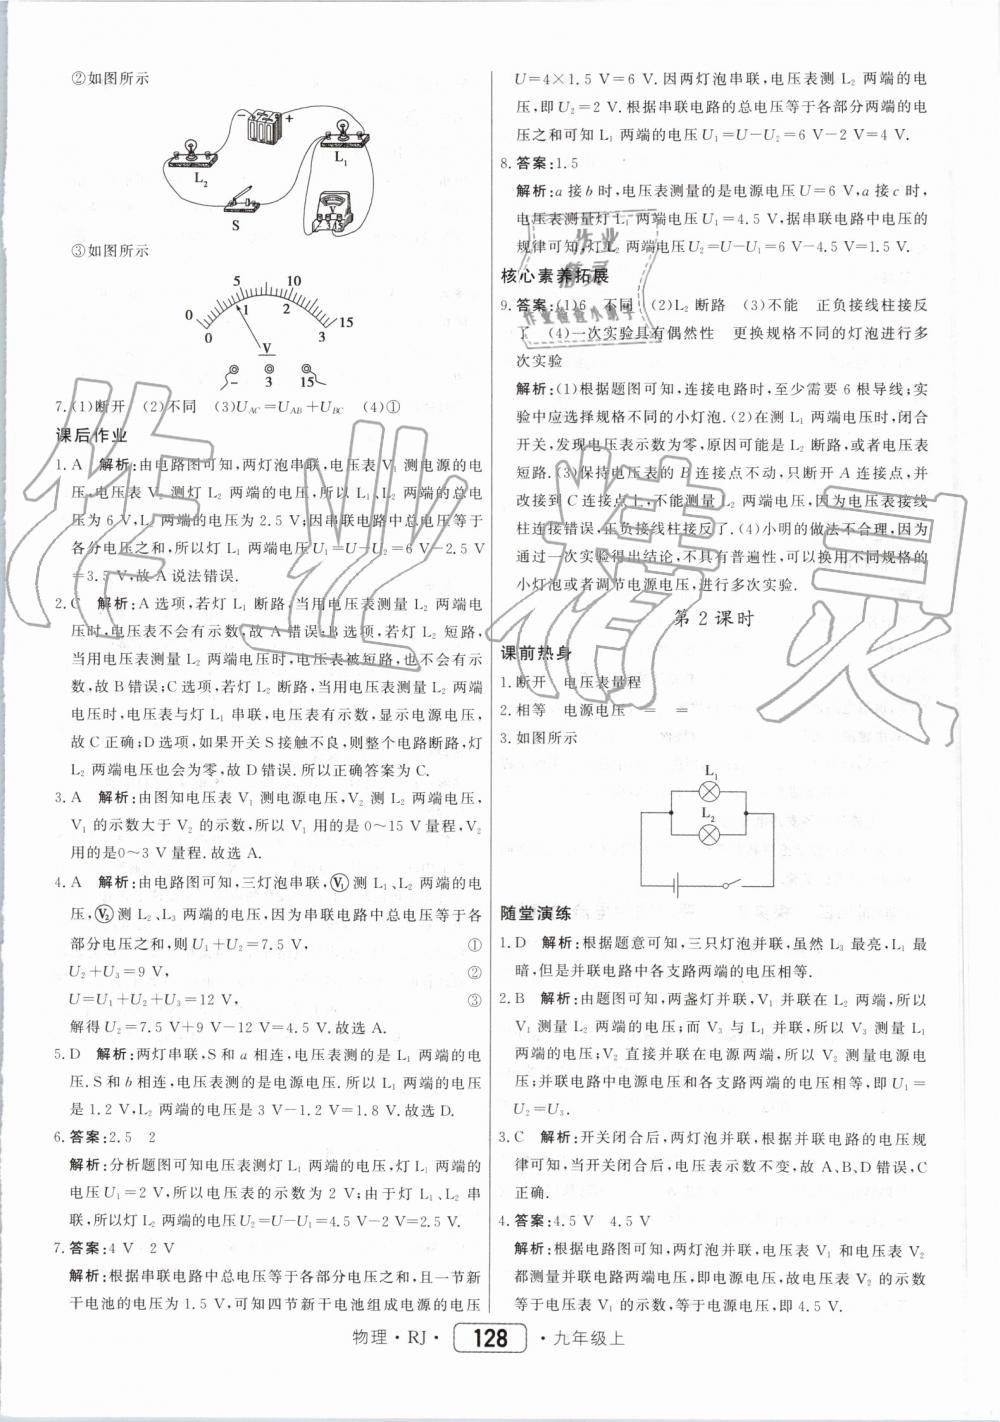 ②如图所示
− +
L₂ L₁
S
V
③如图所示
0 5 10 15
0 1 2 3
V
− 3 15
7.(1)断开 (2)不同 (3)U_AC=U_AB+U_BC (4)①
课后作业
1.A 解析:由电路图可知,两灯泡串联,电压表 V₁ 测电源的电
压,电压表 V₂ 测灯 L₂ 两端的电压,所以 L₁、L₂ 两端的总电
压为 6 V,L₂ 两端的电压为 2.5 V;因串联电路中总电压等于
各分电压之和,所以灯 L₁ 两端的电压U₁=U−U₂=6 V−2.5 V
=3.5 V,故 A 说法错误.
2.C 解析:A 选项,若灯 L₁ 断路,当用电压表测量 L₂ 两端电
压时,电压表不会有示数,故 A 错误;B选项,若灯 L₂ 短路,
当用电压表测量 L₂ 两端电压时,电压表被短路,也不会有示
数,故 B错误;C选项,若灯 L₂ 断路,当用电压表测量 L₂ 两端
电压时,电压表与灯 L₁ 串联,电压表有示数,显示电源电压,
故 C 正确;D选项,如果开关S接触不良,则整个电路断路,灯
L₂ 两端电压也会为零,故 D错误.所以正确答案为 C.
3.A 解析:由图知电压表 V₁ 测电源电压,V₂ 测 L₂ 两端电压,
V₁ 的示数大于 V₂ 的示数,所以 V₁ 用的是 0～15 V量程,V₂
用的是0～3 V量程.故选 A.
4.A 解析:由电路图可知,三灯泡串联,V₁测 L₁、L₂ 两端的电
压,V₂测 L₂、L₃ 两端的电压,因为串联电路中总电压等于各
部分电压之和,则 U₁+U₂=7.5 V, ①
U₂+U₃=9 V, ②
U=U₁+U₂+U₃=12 V, ③
解得 U₂=7.5 V+9 V−12 V=4.5 V.故选 A.
5.D 解析:两灯串联,S和 a 相连,电压表测的是 L₁ 两端的电
压.S和 b 相连,电压表测的是电源电压.所以 L₁ 两端的电压
是 1.2 V,L₂ 两端的电压是 3 V−1.2 V=1.8 V.故选 D.
6.答案:2.5 2
解析:分析题图可知电压表测灯 L₁ 两端的电压,灯 L₁ 两端的
电压U₁=2 V,所以电压表的示数为 2 V;由于灯 L₁、L₂ 串
联,所以灯 L₂ 两端的电压U₂=U−U₁=4.5 V−2 V=2.5 V.
7.答案:4 V 2 V
解析:根据串联电路中总电压等于各部分电压之和,且一节新
干电池的电压为 1.5 V,可知四节新干电池组成电源的电压
U=4×1.5 V=6 V.因两灯泡串联,电压表测 L₂ 两端的电
压,即 U₂=2 V.根据串联电路的总电压等于各部分两端的电
压之和可知 L₁ 两端的电压 U₁=U−U₂=6 V−2 V=4 V.
8.答案:1.5
解析:a 接 b 时,电压表测量的是电源电压 U=6 V,a 接 c 时,
电压表测量灯 L₁ 两端电压 U₁=4.5 V,据串联电路中电压的
规律可知,灯 L₂ 两端电压U₂=U−U₁=6 V−4.5 V=1.5 V.
核心素养拓展
9.答案:(1)6 不同 (2)L₂ 断路 (3)不能 正负接线柱接反
了 (4)一次实验具有偶然性 更换规格不同的灯泡进行多
次实验
解析:(1)根据题图可知,连接电路时,至少需要 6 根导线;实
验中应选择规格不同的小灯泡.(2)在测 L₁ 两端电压时,闭合
开关,发现电压表示数为零,原因可能是 L₂ 断路,或者电压表
短路.(3)保持电压表的 B 连接点不动,只断开 A 连接点,并
改接到 C 连接点上,不能测量 L₂ 两端电压,因为电压表接线
柱连接错误,正负接线柱接反了.(4)小明的做法不合理,因为
通过一次实验得出结论,不具有普遍性,可以换用不同规格的
小灯泡或者调节电源电压,进行多次实验.
第2课时
课前热身
1.断开 电压表量程
2.相等 电源电压 = =
3.如图所示
L₁
L₂
随堂演练
1.D 解析:根据题意可知,三只灯泡并联,虽然 L₃ 最亮,L₁ 最
暗,但是并联电路中各支路两端的电压相等.
2.B 解析:由题图可知,两盏灯并联,V₁ 并联在 L₂ 两端,所以
V₁ 测量 L₂ 两端的电压;而 V₃ 与 L₁ 并联,所以 V₃ 测量 L₁
两端的电压;V₂ 直接并联在电源两端,所以 V₂ 测量电源电
压;并联电路中电源电压和各支路两端的电压相等,即 U₁=
U₂=U₃.
3.C 解析:开关闭合后,两灯泡并联,根据并联电路的电压规
律可知,当开关闭合后,电压表示数不变,故 A、B、D错误,C
正确.
4.答案:4.5 V 4.5 V
解析:根据电路图可知,两灯泡并联,电压表 V₁ 和电压表 V₂
都测量并联电路两端电压,即电源电压,故电压表 V₂ 的示数
等于电压表 V₁ 的示数,等于电源电压,即 4.5 V.
物理·RJ· 128 ·九年级上
作业精灵
作业
精灵
作业检查小助手